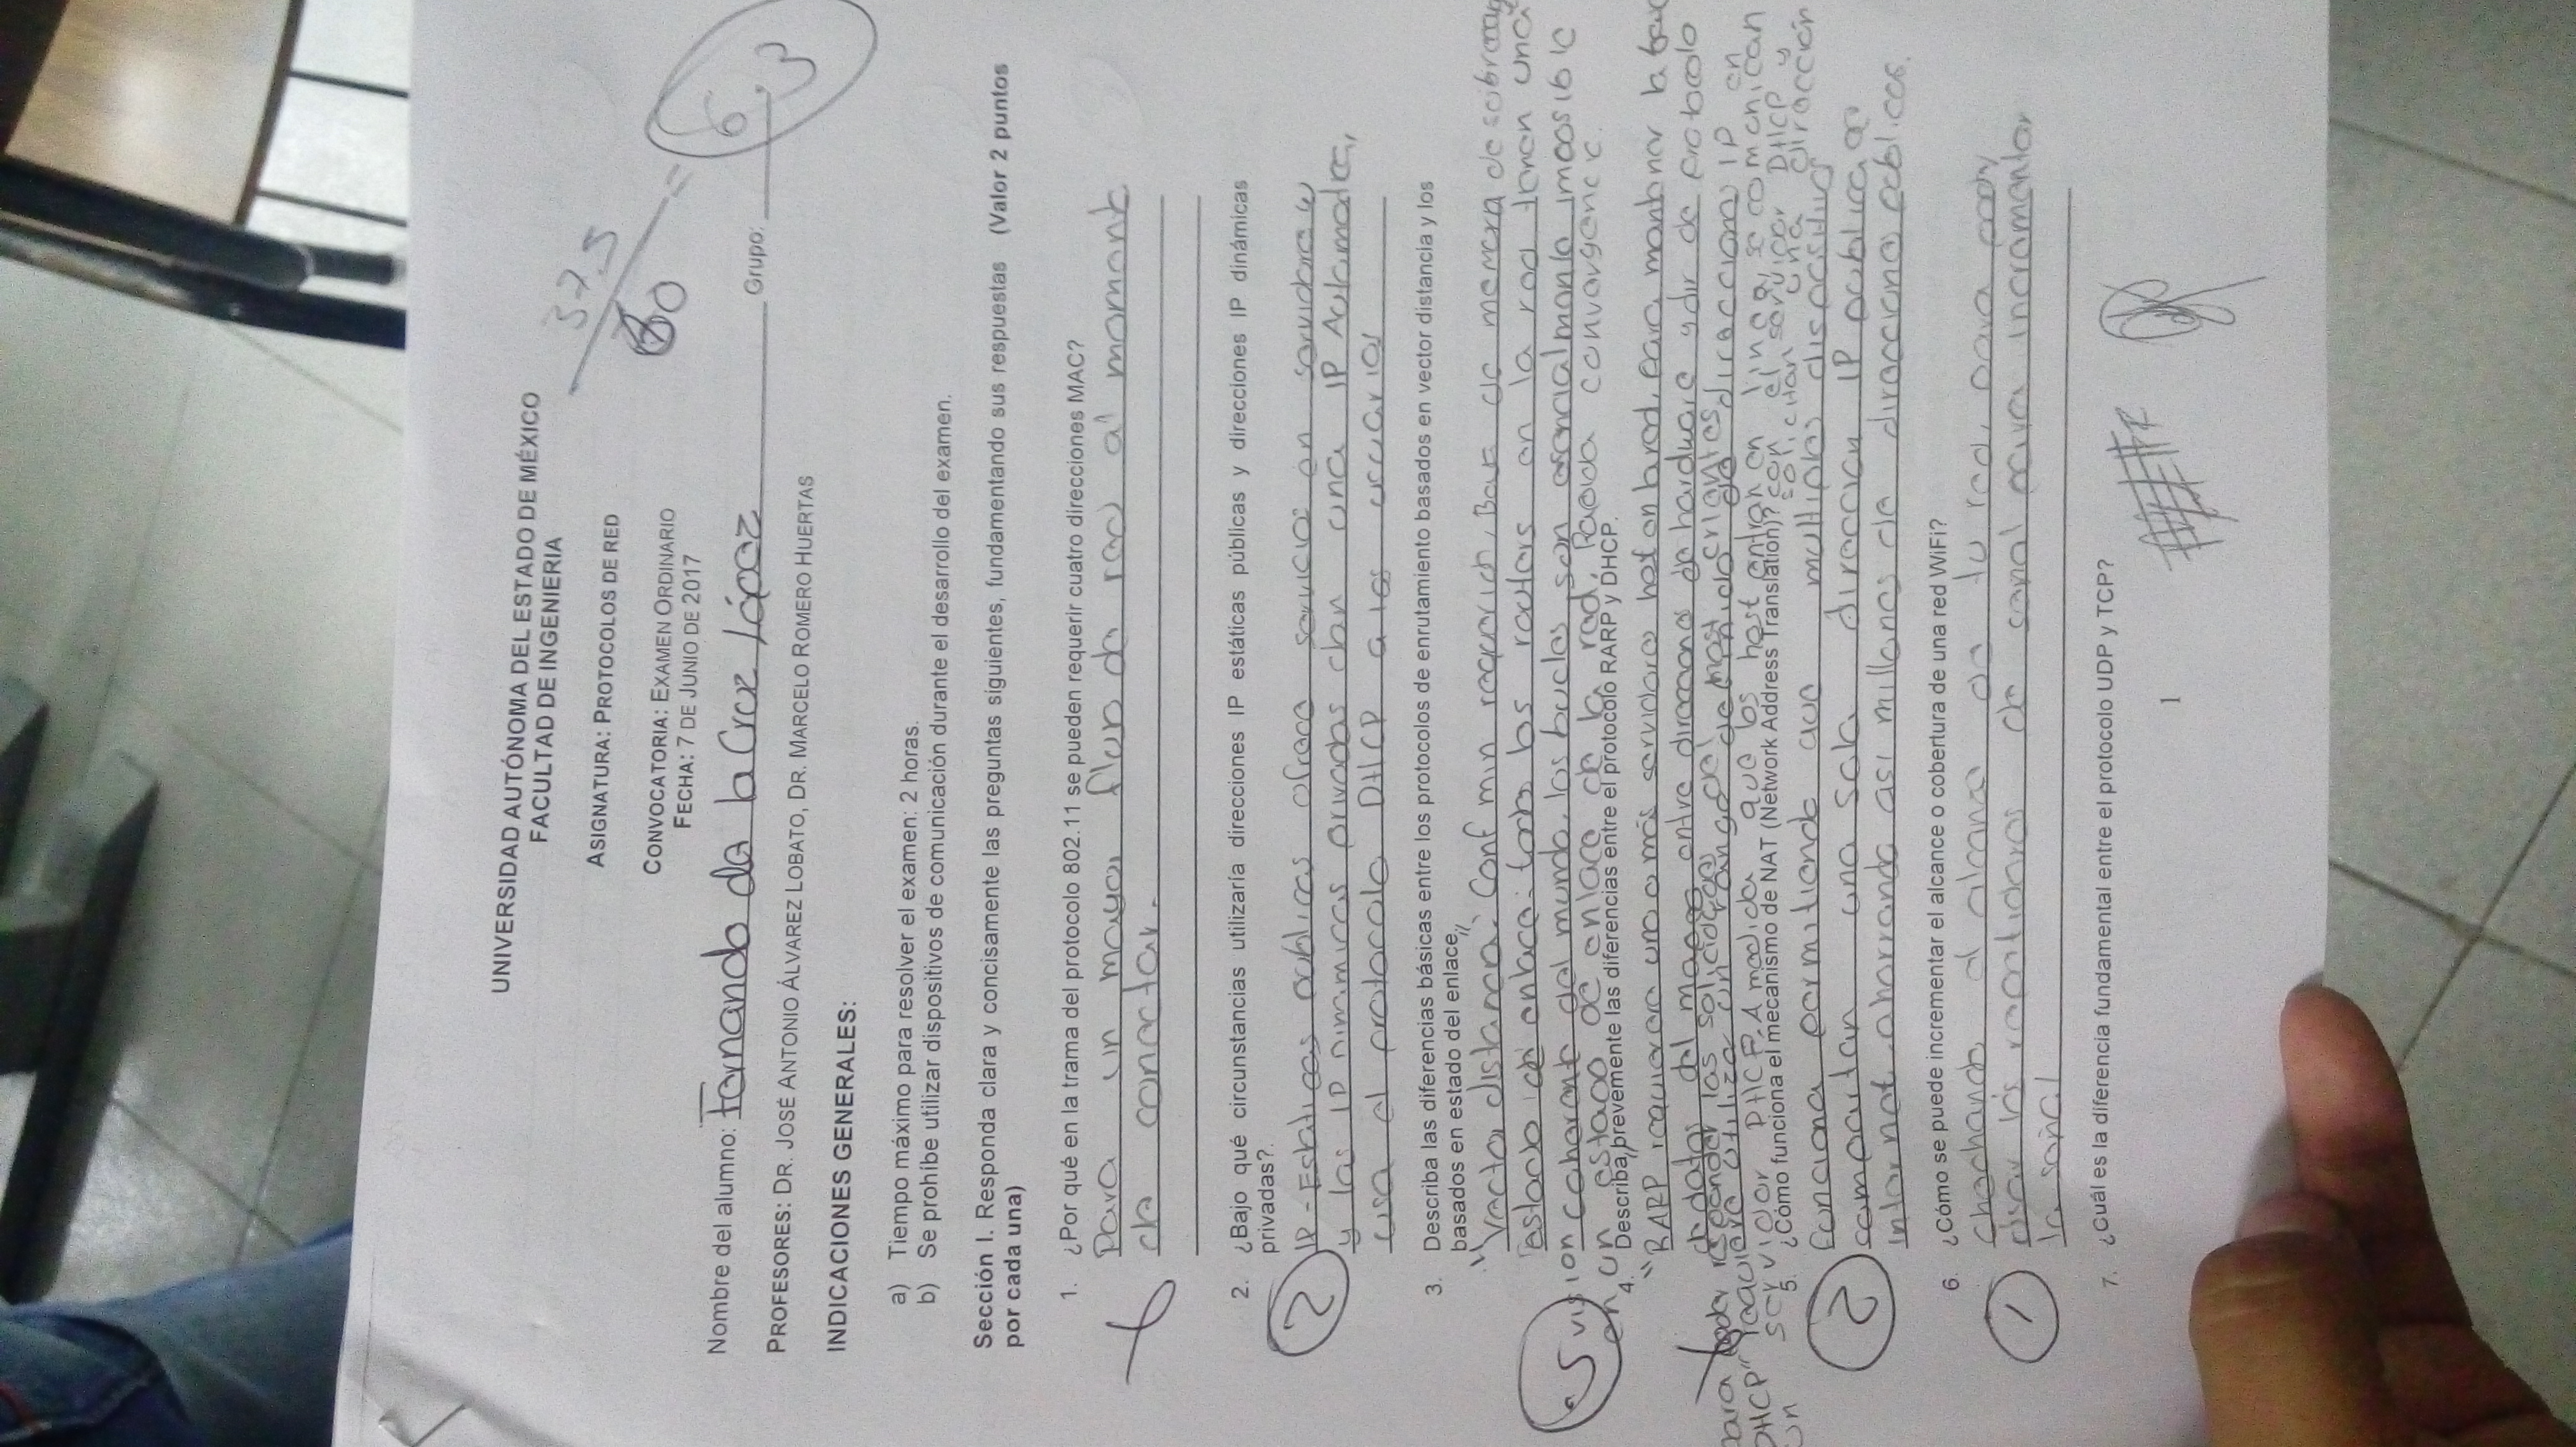 UNIVERSIDAD AUTÓNOMA DEL ESTADO DE MÉXICO
FACULTAD DE INGENIERIA
37.5
ASIGNATURA: PROTOCOLOS DE RED
60
=
CONVOCATORIA: EXAMEN ORDINARIO
FECHA: 7 DE JUNIO DE 2017
6.3
Nombre del alumno: Fernando de la Cruz López Grupo:
PROFESORES: DR. JOSÉ ANTONIO ÁLVAREZ LOBATO, DR. MARCELO ROMERO HUERTAS
INDICACIONES GENERALES:
a) Tiempo máximo para resolver el examen: 2 horas.
b) Se prohíbe utilizar dispositivos de comunicación durante el desarrollo del examen.
Sección I. Responda clara y concisamente las preguntas siguientes, fundamentando sus respuestas (Valor 2 puntos
por cada una)
1. ¿Por qué en la trama del protocolo 802.11 se pueden requerir cuatro direcciones MAC?
Para un mayor flujo de red al momento
de conectar.
2. ¿Bajo qué circunstancias utilizaría direcciones IP estáticas públicas y direcciones IP dinámicas
privadas?.
2 IP-Estaticas publicas ofrece servicios en servidores
y las IP Dinamicas privadas dan una IP
usa el protocolo DHCP a los usuarios
3. Describa las diferencias básicas entre los protocolos de enrutamiento basados en vector distancia y los
basados en estado del enlace.
"Vector distancia": Conf min de memoria
estado de enlace: todos los routers en la red tienen una
.5 vision coherente del mundo. los bucles son esencialmente imposible
en un estado de enlace de la red. Rapida convergencia.
4. Describa brevemente las diferencias entre el protocolo RARP y DHCP.
"RARP" requiere uno o mas servidores host en la red, para mantener la base
de datos del mapeo entre direcciones de hardware y dir de protocolo
para poder responder las solicitudes del host clientes
DHCP" requiere utiliza un rango de direccion IP en
un servidor DHCP. A medida que los host entran en linea, se comunican
5. ¿Cómo funciona el mecanismo de NAT (Network Address Translation)? con el servidor DHCP y
solicitan una dirección
funciona permitiendo que multiples dispositivos
2 compartan una sola direccion IP publica
internet ahorrando asi millones de direcciones publicas.
6. ¿Cómo se puede incrementar el alcance o cobertura de una red WiFi?
Chechando el alcance de tu red, para poder
1 usar los repetidores de señal para incrementar
la señal
7. ¿Cuál es la diferencia fundamental entre el protocolo UDP y TCP?
1